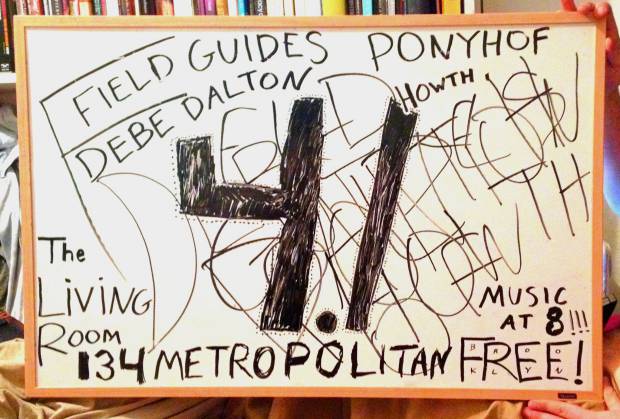 FIELD GUIDES PONYHOF
DEBE DALTON HOWTH
4.1
The
LiViNG
ROOM
MUSIC
AT 8!!!
134 METROPOLITAN FREE!
BROO
KLYN